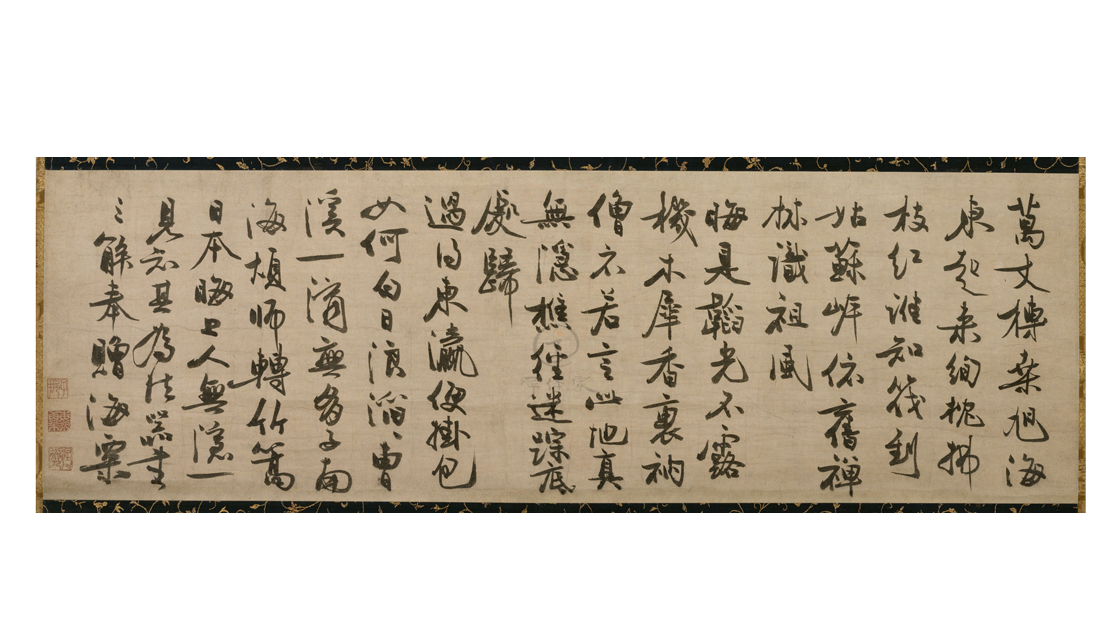 萬丈榑桒旭海
東起来絢晩拂
枝紅誰知筏到
姑蘇岸依舊禅
林識祖風
晦是韜光不露
機木犀香裏衲
僧衣若言此地真
無隠樵径迷踪底
處歸
過得東瀛便掛包
如何白日浪滔〻曹
溪一滴無多子南
海梢師轉竹篙
日本晦上人無隠一
見知其為法器書
三觧奉贈海粟